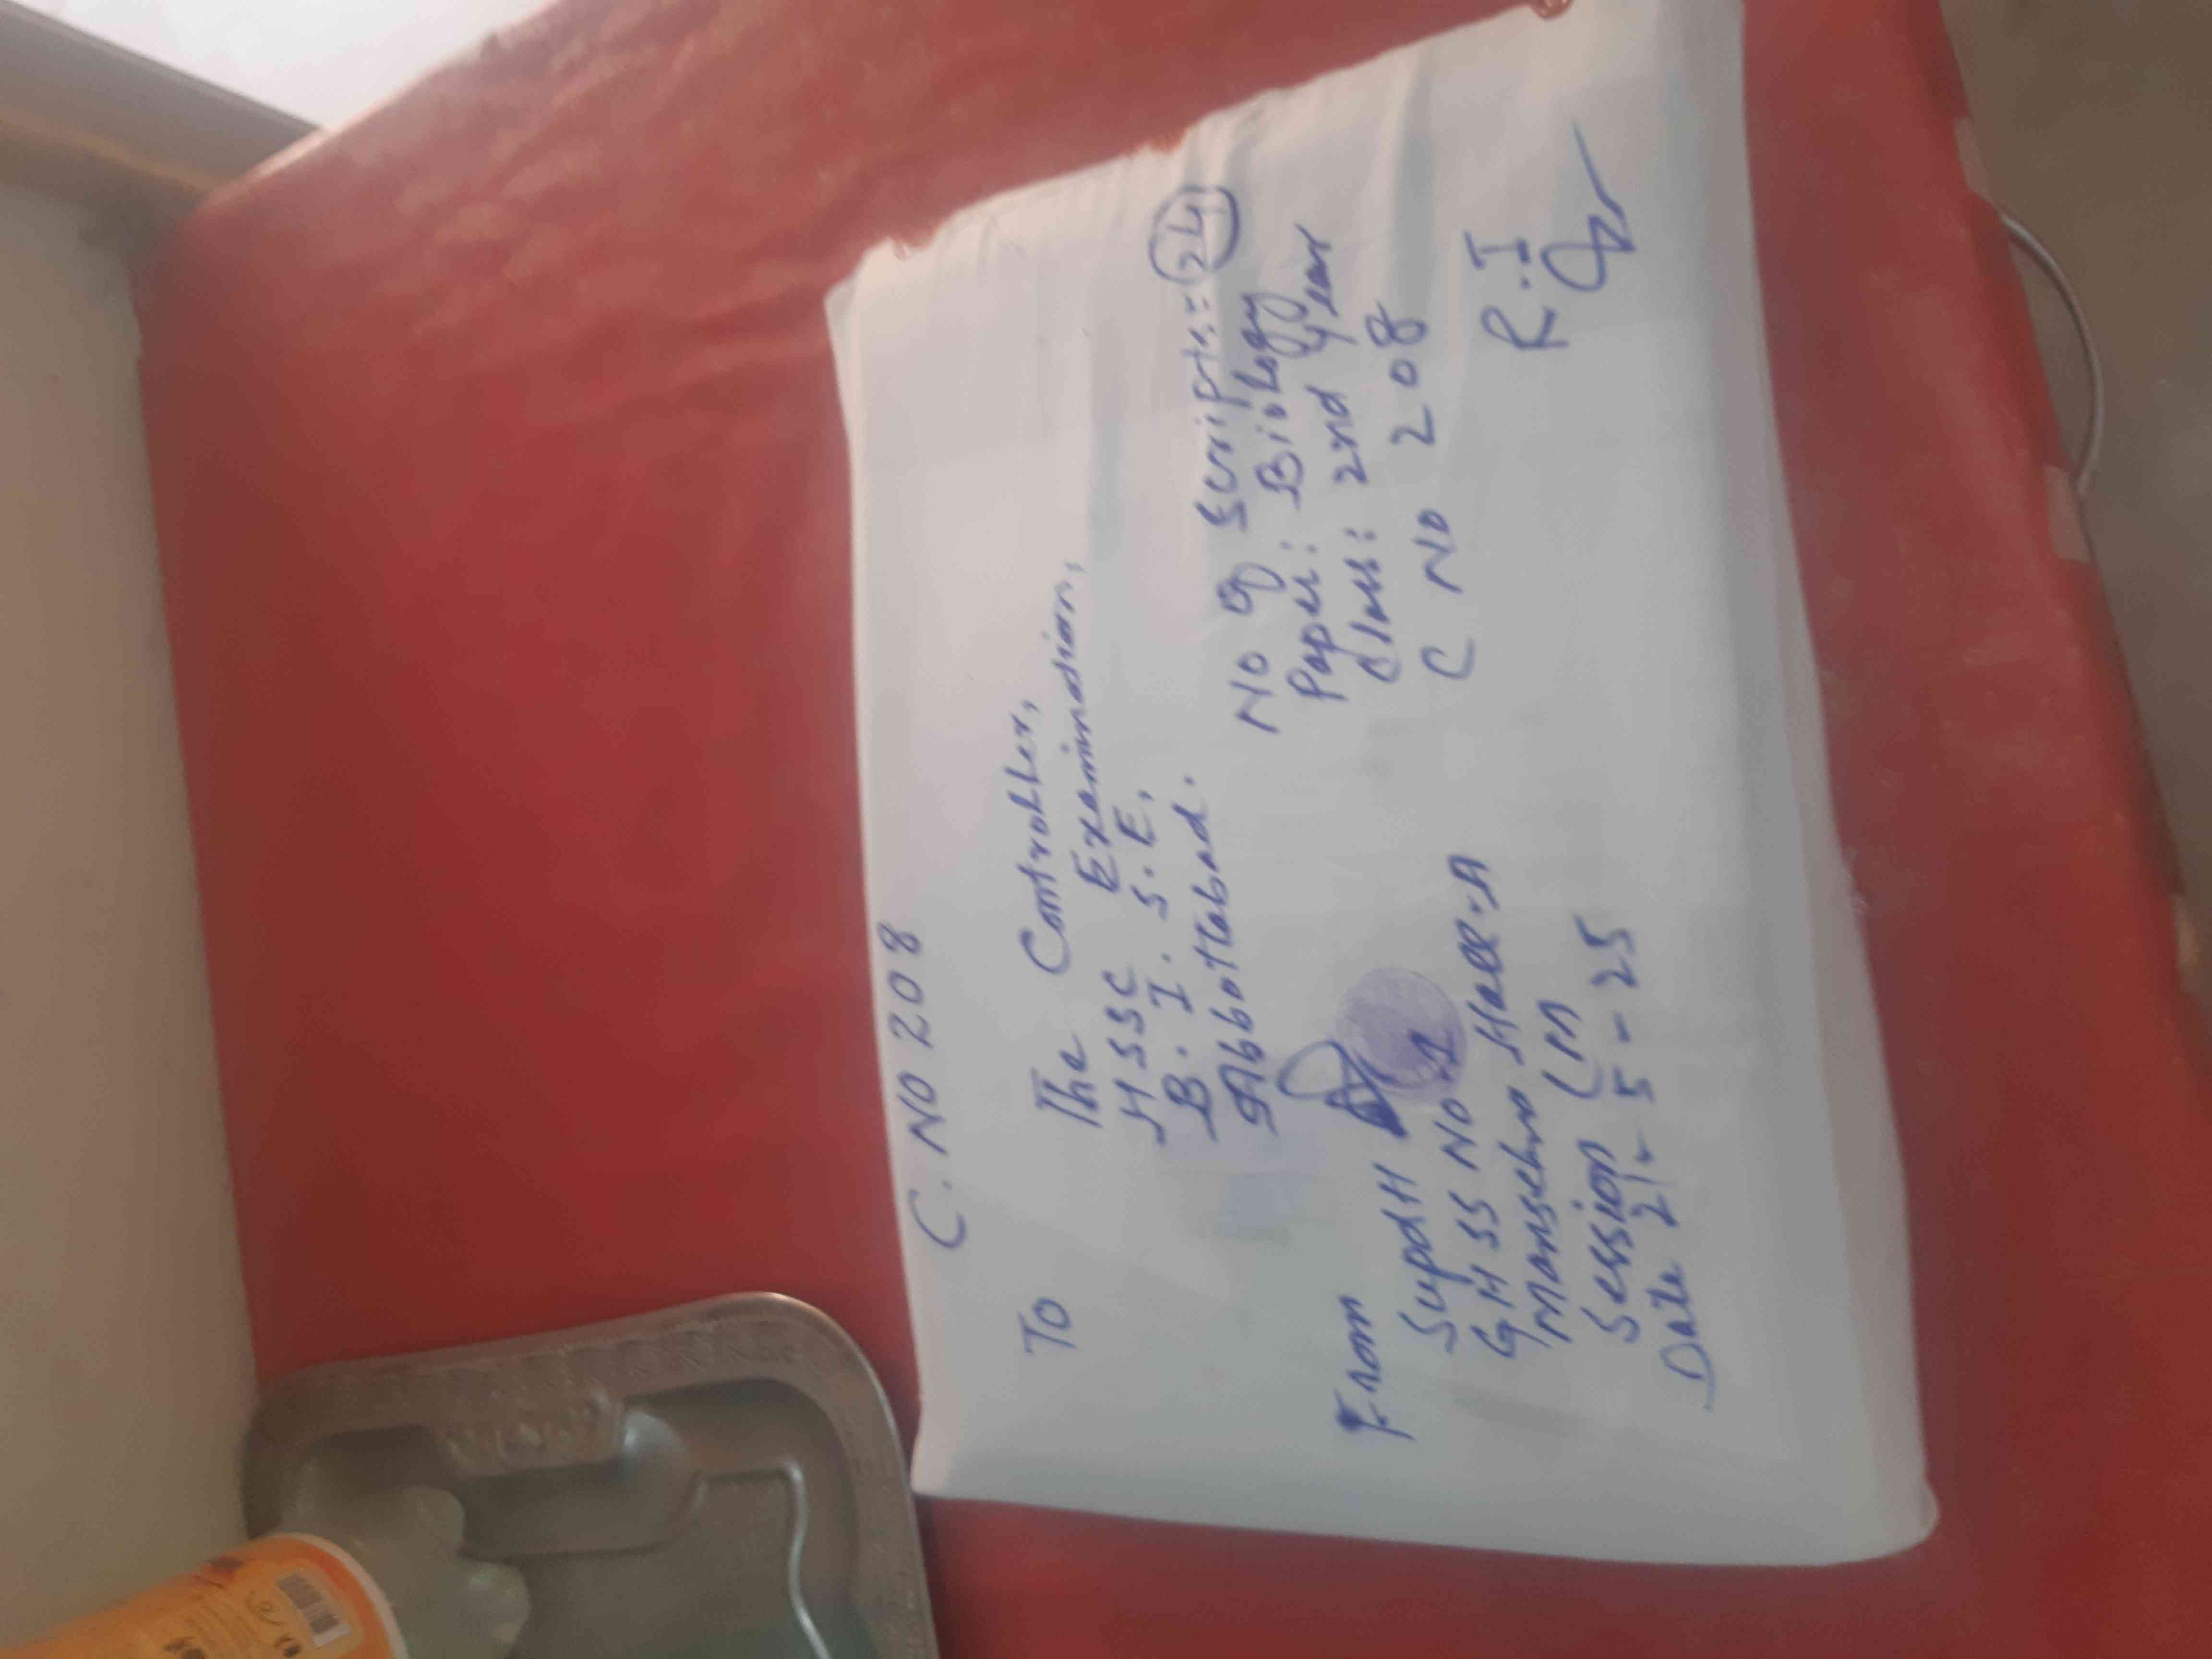 C. No 208
To
The Controller,
HSSC Examination,
B. I. S. E,
Abbottabad.
No of Scripts: 24
Paper: Biology
Class: 2nd Year
C No 208
R.I
From
Supdtt
GHSS No.1
Mansehra Hall-A
Session (M
Date 21-5-25